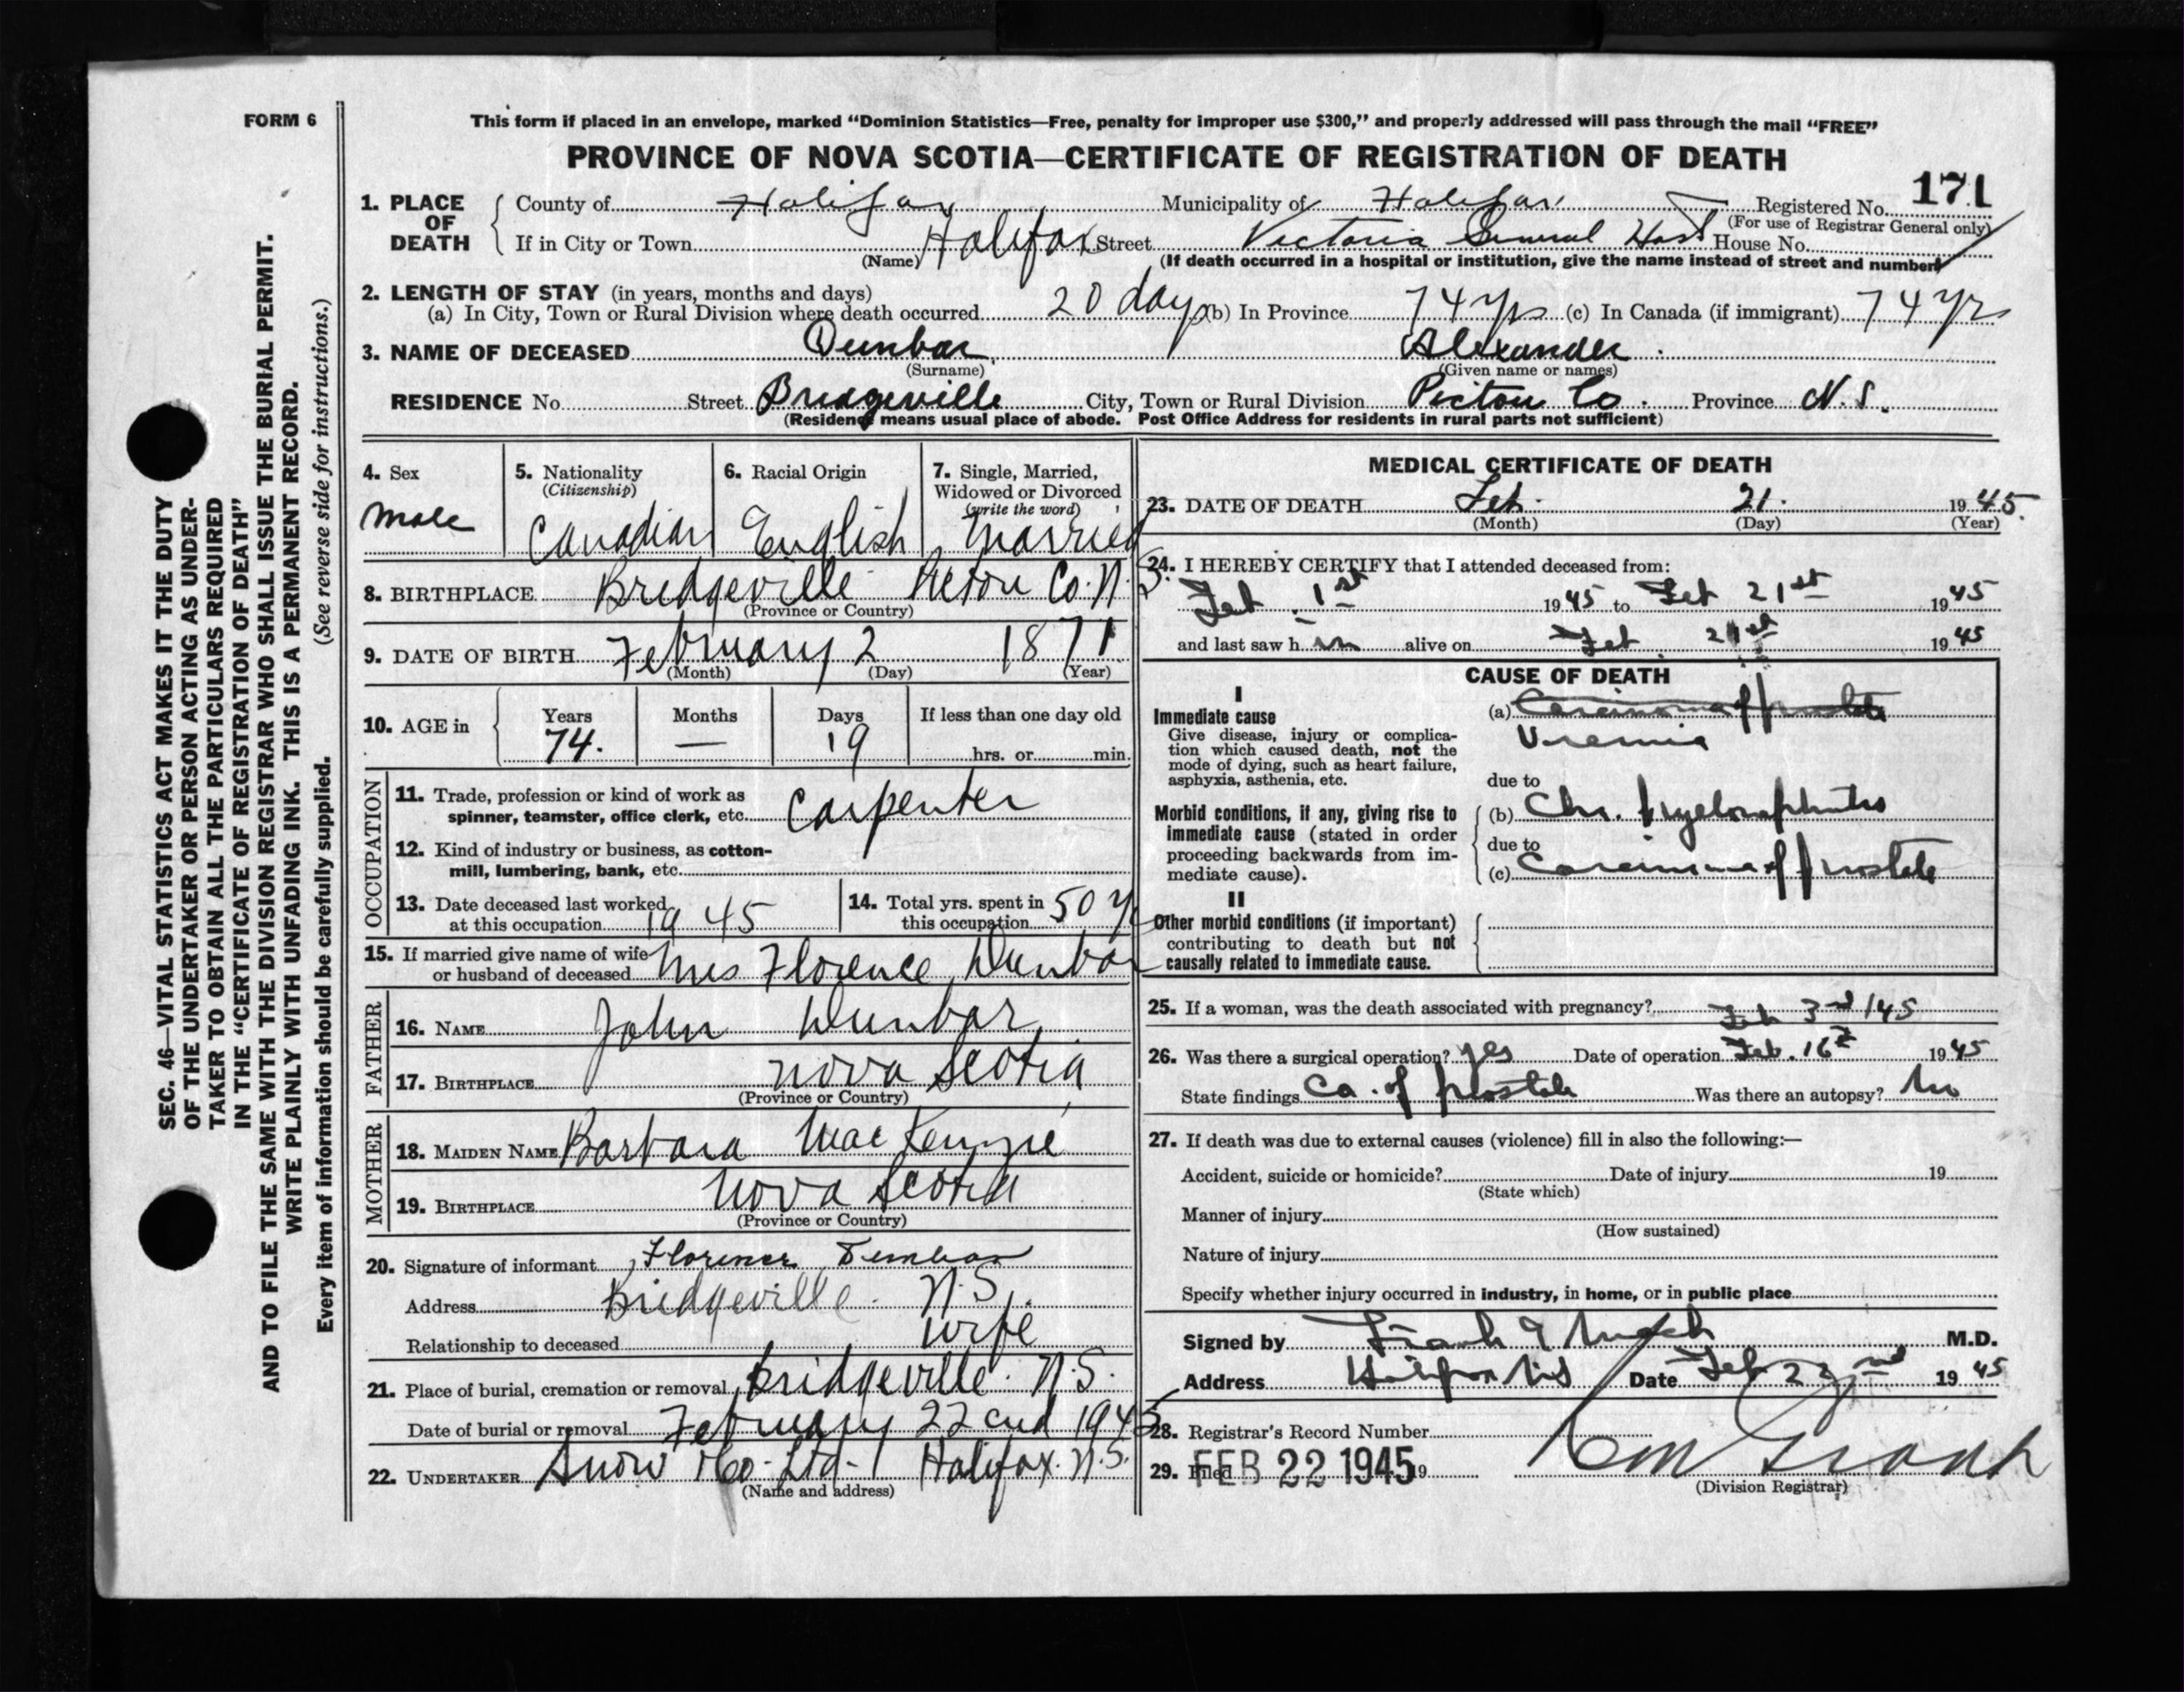 FORM 6
This form if placed in an envelope, marked "Dominion Statistics—Free, penalty for improper use $300," and properly addressed will pass through the mail "FREE"
PROVINCE OF NOVA SCOTIA—CERTIFICATE OF REGISTRATION OF DEATH
171
1. PLACE OF DEATH County of Halifax Municipality of Halifax Registered No.
(For use of Registrar General only)
If in City or Town Halifax Street Victoria General Hosp House No.
(Name) (If death occurred in a hospital or institution, give the name instead of street and number)
2. LENGTH OF STAY (in years, months and days)
(a) In City, Town or Rural Division where death occurred 20 days (b) In Province 74 yrs (c) In Canada (if immigrant) 74 yrs
3. NAME OF DECEASED Dunbar, Alexander.
(Surname) (Given name or names)
RESIDENCE No. Street Bridgeville City, Town or Rural Division Pictou Co. Province N.S.
(Residence means usual place of abode. Post Office Address for residents in rural parts not sufficient)
4. Sex
male
5. Nationality
(Citizenship)
Canadian
6. Racial Origin
English
7. Single, Married,
Widowed or Divorced
(write the word)
Married
8. BIRTHPLACE Bridgeville Pictou Co. N.S.
(Province or Country)
9. DATE OF BIRTH February 2 1871
(Month) (Day) (Year)
10. AGE in Years Months Days If less than one day old
74. — 19 hrs. or min.
OCCUPATION
11. Trade, profession or kind of work as
spinner, teamster, office clerk, etc. Carpenter
12. Kind of industry or business, as cotton-
mill, lumbering, bank, etc.
13. Date deceased last worked
at this occupation 1945
14. Total yrs. spent in
this occupation 50 yrs
15. If married give name of wife
or husband of deceased Mrs Florence Dunbar
FATHER
16. NAME John Dunbar
17. BIRTHPLACE Nova Scotia
(Province or Country)
MOTHER
18. MAIDEN NAME Barbara MacKenzie
19. BIRTHPLACE Nova Scotia
(Province or Country)
20. Signature of informant Florence Dunbar
Address Bridgeville. N.S.
Relationship to deceased wife
21. Place of burial, cremation or removal Bridgeville. N.S.
Date of burial or removal February 22 cnd 1945
22. UNDERTAKER Snow & Co. Ltd. Halifax. N.S.
(Name and address)
MEDICAL CERTIFICATE OF DEATH
23. DATE OF DEATH Feb. 21. 1945.
(Month) (Day) (Year)
24. I HEREBY CERTIFY that I attended deceased from:
Feb. 1st 1945 to Feb 21st 1945
and last saw him alive on Feb. 21st 1945
CAUSE OF DEATH
I
Immediate cause
Give disease, injury or complica-
tion which caused death, not the
mode of dying, such as heart failure,
asphyxia, asthenia, etc.
(a) Carcinoma of prostate
Uremia
due to
Morbid conditions, if any, giving rise to
immediate cause (stated in order
proceeding backwards from im-
mediate cause).
(b) Chr. Pyelonephritis
due to
(c) Carcinoma of prostate
II
Other morbid conditions (if important)
contributing to death but not
causally related to immediate cause.
25. If a woman, was the death associated with pregnancy?
Feb 3rd /45
26. Was there a surgical operation? yes Date of operation Feb. 16th 1945
State findings Ca. of prostate Was there an autopsy? No
27. If death was due to external causes (violence) fill in also the following:—
Accident, suicide or homicide? Date of injury 19
(State which)
Manner of injury
(How sustained)
Nature of injury
Specify whether injury occurred in industry, in home, or in public place
Signed by Frank M.D.
Address Halifax N.S. Date Feb 22nd 1945
28. Registrar's Record Number
29. Filed FEB 22 1945 19
(Division Registrar)
SEC. 46—VITAL STATISTICS ACT MAKES IT THE DUTY
OF THE UNDERTAKER OR PERSON ACTING AS UNDER-
TAKER TO OBTAIN ALL THE PARTICULARS REQUIRED
IN THE "CERTIFICATE OF REGISTRATION OF DEATH"
AND TO FILE THE SAME WITH THE DIVISION REGISTRAR WHO SHALL ISSUE THE BURIAL PERMIT.
WRITE PLAINLY WITH UNFADING INK. THIS IS A PERMANENT RECORD.
Every item of information should be carefully supplied. (See reverse side for instructions.)